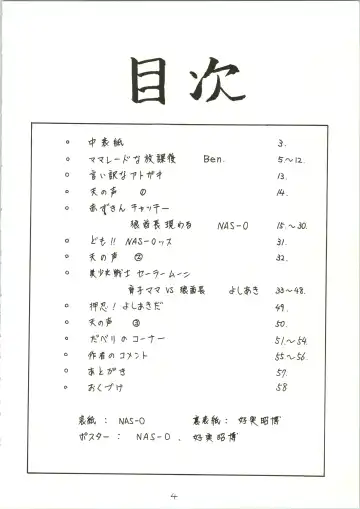 目次
○ 中表紙 3.
○ ママレードな放課後 Ben. 5〜12.
○ 言い訳なアトガキ 13.
○ 天の声 ① 14.
○ あずきん チャッキー
狼酋長現わる NAS-O 15〜30.
○ ども!! NAS-Oッス 31.
○ 天の声 ② 32.
○ 美少女戦士 セーラームーン
育子ママ VS 狼酋長 よしあき 33〜48.
○ 押忍! よしあきだ 49.
○ 天の声 ③ 50.
○ だべりのコーナー 51〜54.
○ 作者のコメント 55〜56.
○ あとがき 57.
○ おくづけ 58
表紙 : NAS-O 裏表紙 : 好実昭博
ポスター : NAS-O 、 好実昭博
4